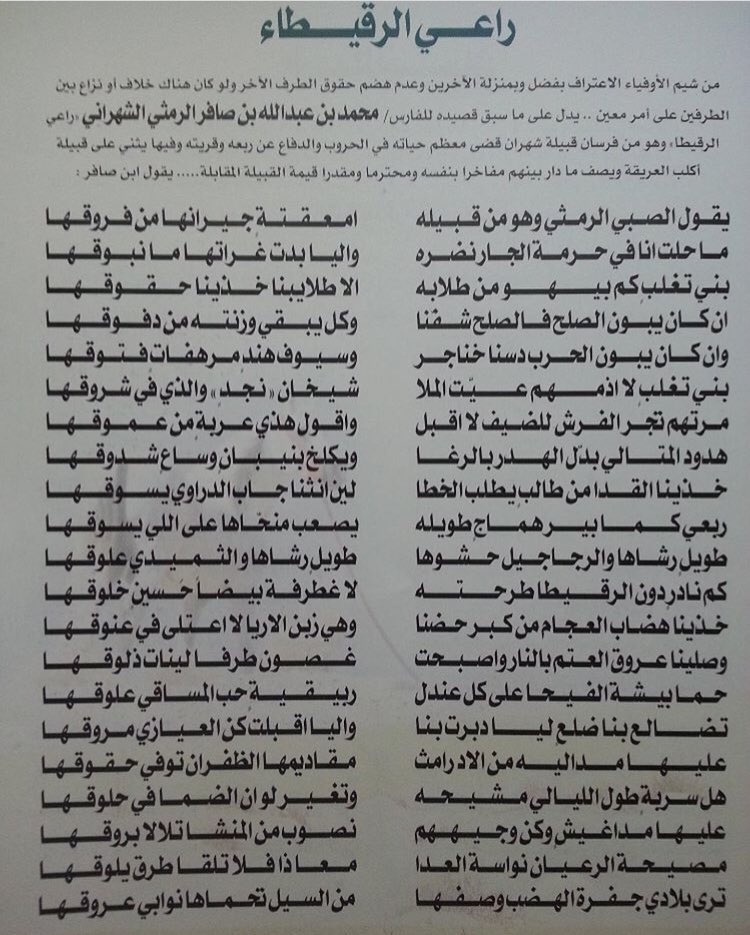 راعي الرقيطاء
من شيم الأوفياء الاعتراف بفضل وبمنزلة الأخرين وعدم هضم حقوق الطرف الأخر ولو كان هناك خلاف أو نزاع بين
الطرفين على أمر معين .. يدل على ما سبق قصيده للفارس/ محمد بن عبدالله بن صافر الرمثي الشهراني «راعي
الرقيطاء» وهو من فرسان قبيلة شهران قضى معظم حياته في الحروب والدفاع عن ربعه وقريته وفيها يثني على قبيلة
أكلب العريقة ويصف ما دار بينهم مفاخرا بنفسه ومحترما ومقدرا قيمة القبيلة المقابلة..... يقول ابن صافر :
يقول الصبي الرمثي وهو من قبيله امعقتة جيرانها من فروقها
ما حلت انا في حرمة الجار نضره واليا بدت غراتها ما نبوقها
بني تغلب كم بيهو من طلابه الا طلايبنا خذينا حقوقها
ان كان يبون الصلح فالصلح شفنا وكل يبقي وزنته من دفوقها
وان كان يبون الحرب دسنا خناجر وسيوف هند مرهفات فتوقها
بني تغلب لا اذمهم عيت الملا شيخان «نجد» والذي في شروقها
مرتهم تجر الفرش للضيف لا اقبل واقول هذي عربة من عموقها
هدود المتالي بدل الهدر بالرغا ويكلخ بنيبان وساع شدوقها
خذينا القدا من طالب يطلب الخطا لين انثنا جاب الدراوي يسوقها
ربعي كما بير هماج طويله يصعب منخاها على اللي يسوقها
طويل رشاها والرجاجيل حشوها طويل رشاها والثميدي علوقها
كم نادر دون الرقيطا طرحته لا غطرفة بيضا حسين خلوقها
خذينا هضاب العجام من كبر حضنا وهي زبن الاريا لا اعتلى في عنوقها
وصلينا عروق العتم بالنار واصبحت غصون طرفا لينات ذلوقها
حما بيشة الفيحا على كل عندل ربيقية حب المساقي علوقها
تضالع بنا ضلع ليا دبرت بنا واليا اقبلت كن العيازي مروقها
عليها مداليه من الادرامث مقاديمها الظفران توفي حقوقها
هل سربة طول الليالي مشيحه وتغير لو ان الضما في حلوقها
عليها مداغيش وكن وجيههم نصوب من المنشا تلالا بروقها
مصيحة الرعيان نواسة العدا معاذا فلا تلقا طرق يلوقها
ترى بلادي جفرة الهضب وصفها من السيل تحماها نوابي عروقها